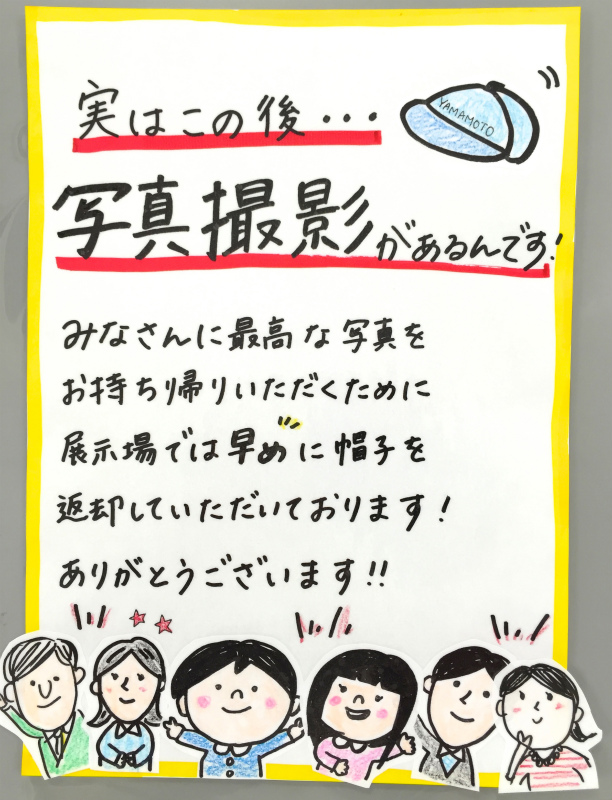 実はこの後・・・
YAMAMOTO
写真撮影があるんです!
みなさんに最高な写真を
お持ち帰りいただくために
展示場では早めに帽子を
返却していただいております!
ありがとうございます!!